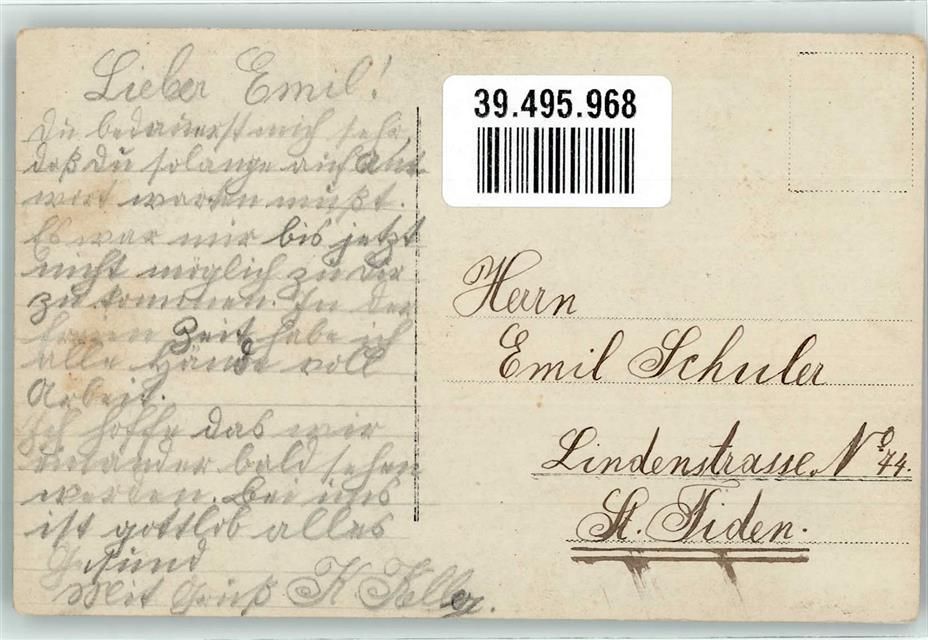 Lieber Emil!
Du bedauerst mich sehr,
daß Du solange auf Ant
wort warten mußt.
Es war mir bis jetzt
nicht möglich zu Dir
zu kommen. In der
freien Zeit habe ich
alle Hände voll
Arbeit.
Ich hoffe das wir
einander bald sehen
werden. Bei uns
ist gottlob alles
Gesund
Mit Gruß K Keller.
39.495.968
Herrn
Emil Schuler
Lindenstrasse No 44.
St. Fiden.